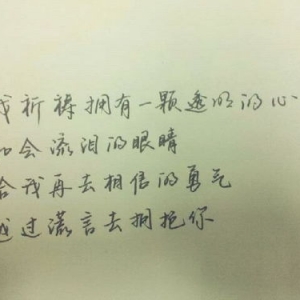 我祈祷拥有一颗透明的心
和会流泪的眼睛
给我再去相信的勇气
越过谎言去拥抱你